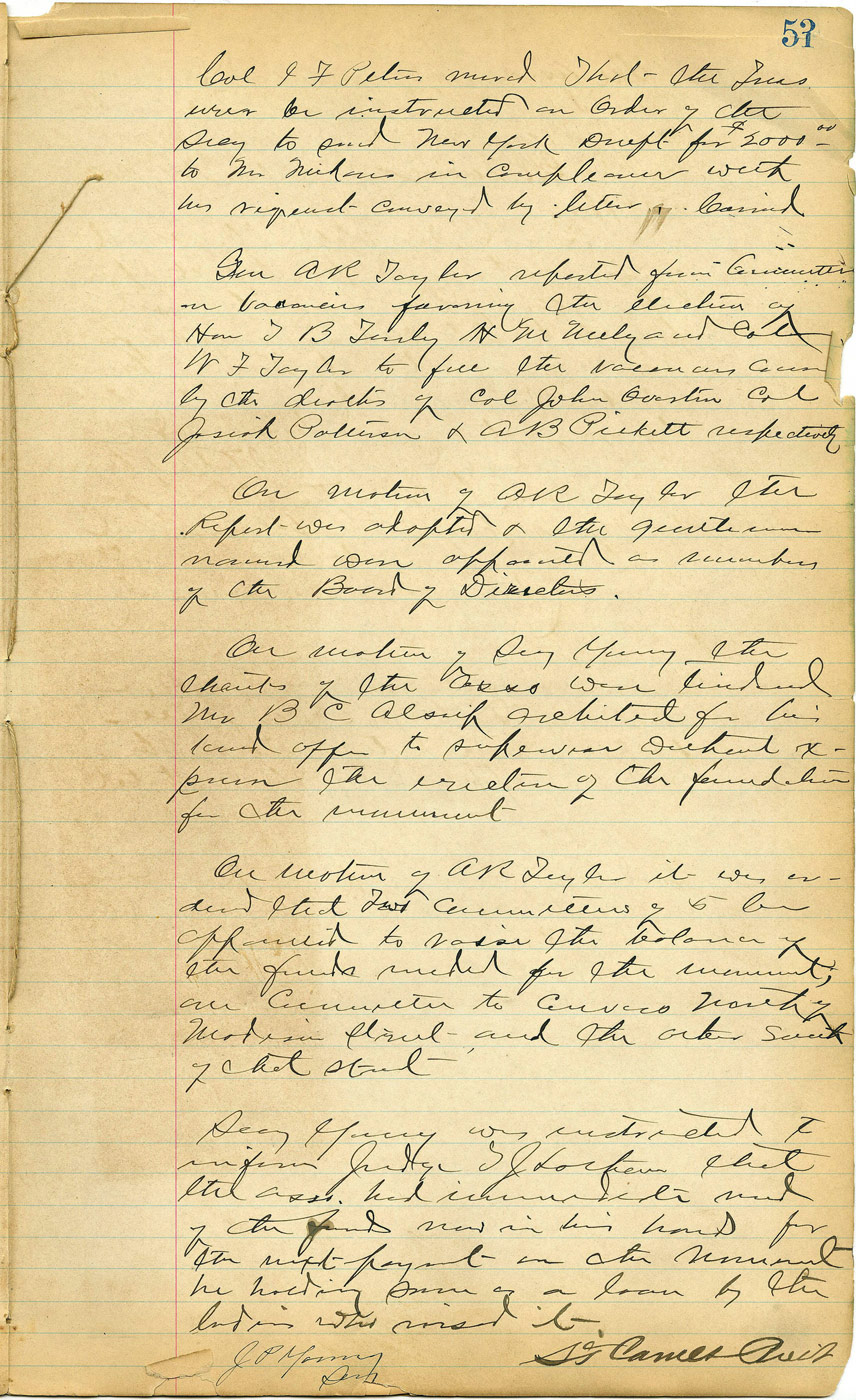 53
Col I F Peters moved That the Treas
urer be instructed on Order of the
Secy to send New York Draft for $2000.00
to Mr Niehaus in compliance with
his request conveyed by letter. Carried
Gen A R Taylor reported from Committee
on Vacancies favoring the election of
Hon T B Turley H M Neely and Col
W F Taylor to fill the vacancies caus
by the deaths of Col John Overton Col
Josiah Patterson & A B Pickett respectively
On motion of A R Taylor the
Report was adopted & the gentlemen
named were appointed as members
of the Board of Directors.
On motion of Secy Young the
thanks of the Asso were tendered
Mr B C Alsup architect for his
kind offer to supervise without ex-
pense the erection of the foundation
for the monument
On motion of A R Taylor it was or-
dered that Two Committees of 5 be
appointed to raise the balance of
the funds needed for the monument;
one Committee to canvass North of
Madison Street and the other South
of that street
Secy Young was instructed to
inform Judge T J Latham that
the asso. had immediate need
of the funds now in his hands for
the next payment on the Monument
he holding same as a loan by the
ladies who raised it
J P Young
Secty